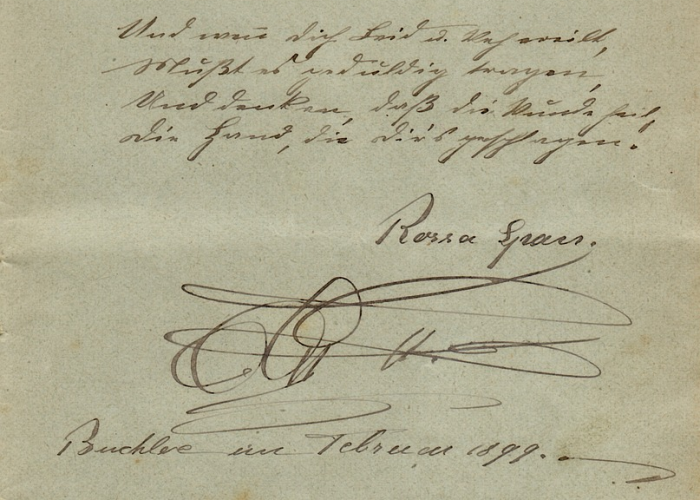 Und wenn dich Leid u. Weh ereilt,
Mußt es geduldig tragen,
Und denken, daß die Wunde heilt,
Die Hand, die dir's geschlagen.
Rossa
Buchloe im Februar 1899.